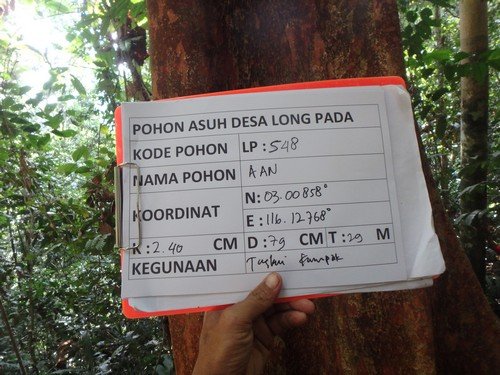 POHON ASUH DESA LONG PADA
KODE POHON LP : 548
NAMA POHON AAN
KOORDINAT N: 03.00858°
E: 116.12768°
K : 2.40 CM D : 79 CM T : 29 M
KEGUNAAN